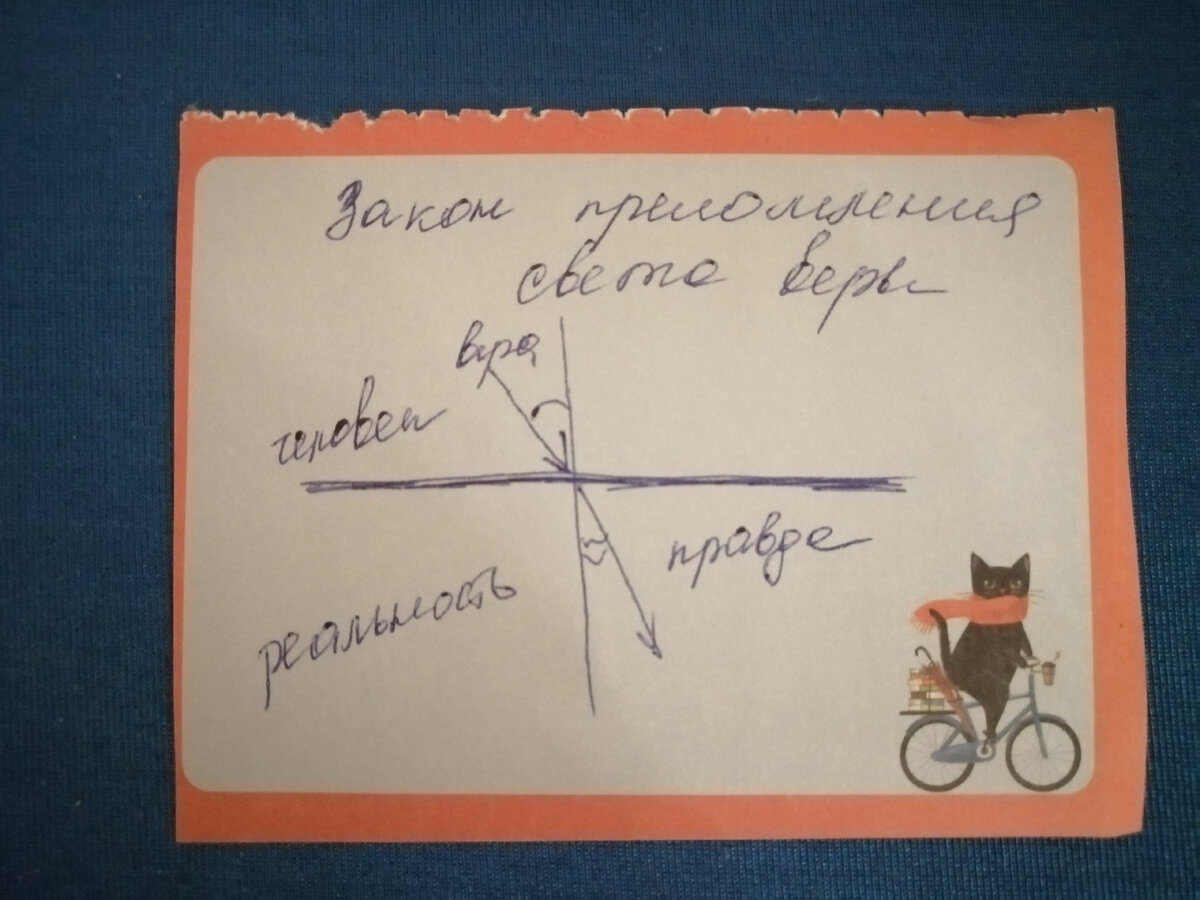 Закон преломления
света веры
вера
человек
правда
реальность